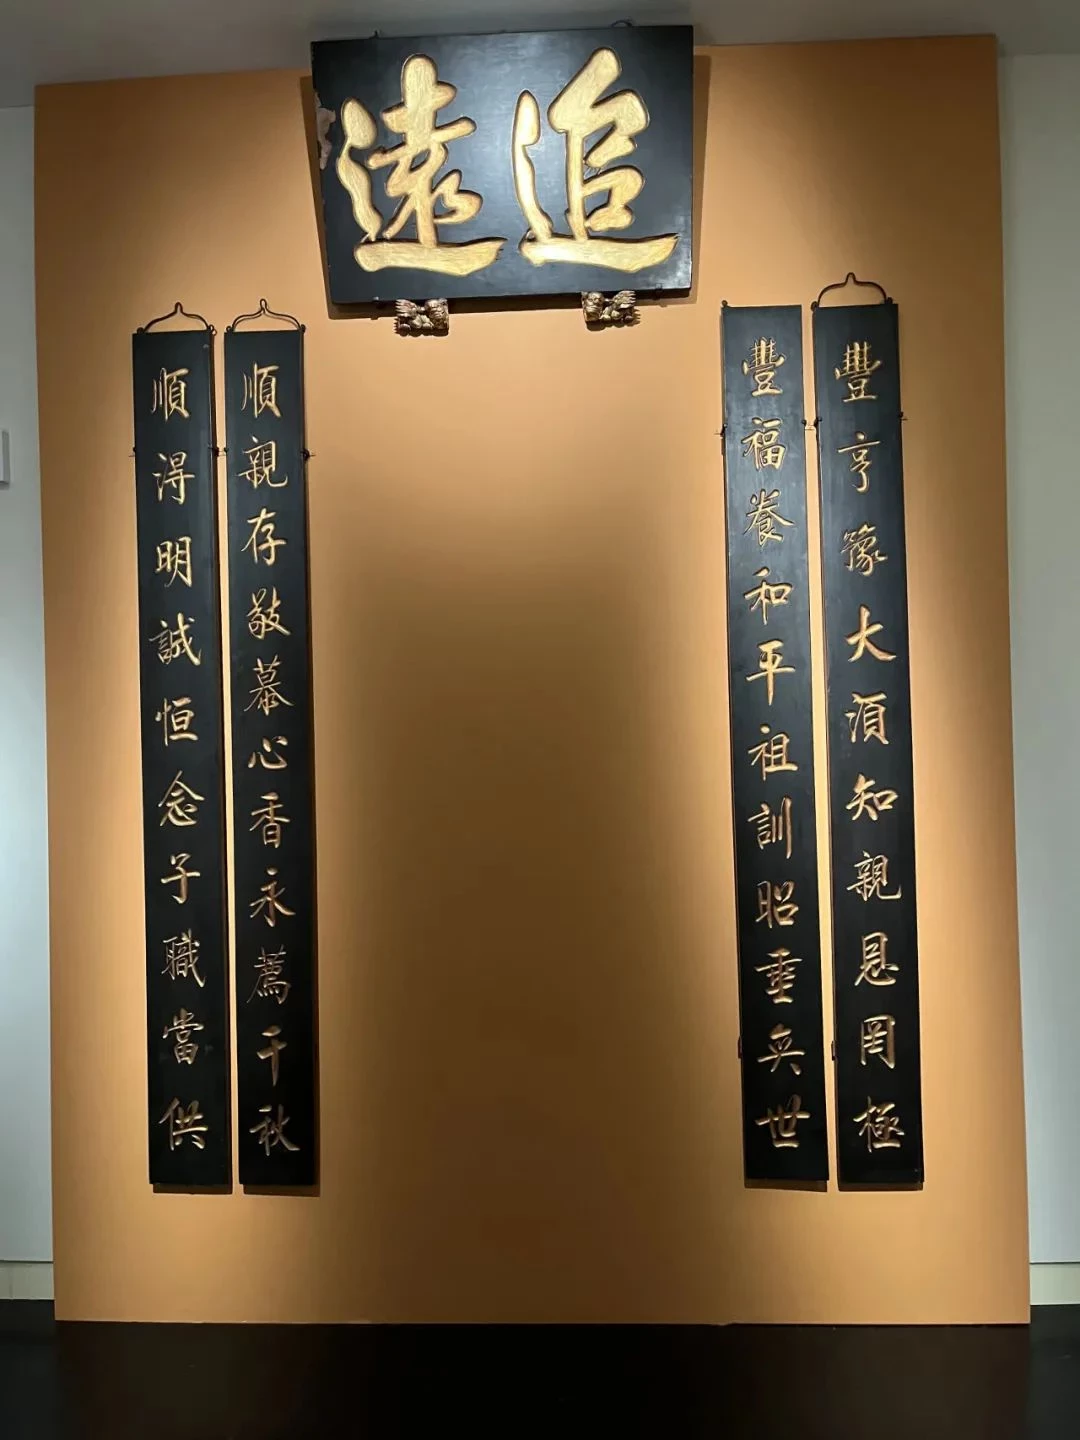 追遠
豐亨豫大須知親恩罔極
豐福養和平祖訓昭垂奕世
順親存敬慕心香永薦千秋
順得明誠恒念子職當供